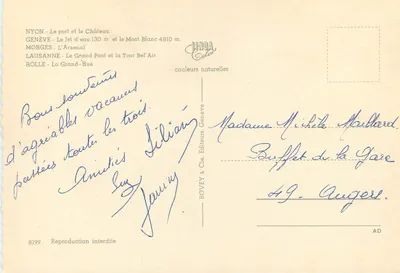 NYON - Le port et le Château
GENÈVE - Le Jet d'eau 130 m. et le Mont Blanc 4810 m.
MORGES - L'Arsenal
LAUSANNE - Le Grand Pont et la Tour Bel Air
ROLLE - La Grand-Rue
couleurs naturelles
Bons souvenirs
d'agréables vacances
passées toutes les trois.
Amitiés
Liliane
Suzy
BOVEY & Cie, Editeurs, Genève
Madame Michèle Maillard
Buffet de la Gare
49. Angers.
8299 Reproduction interdite
AD